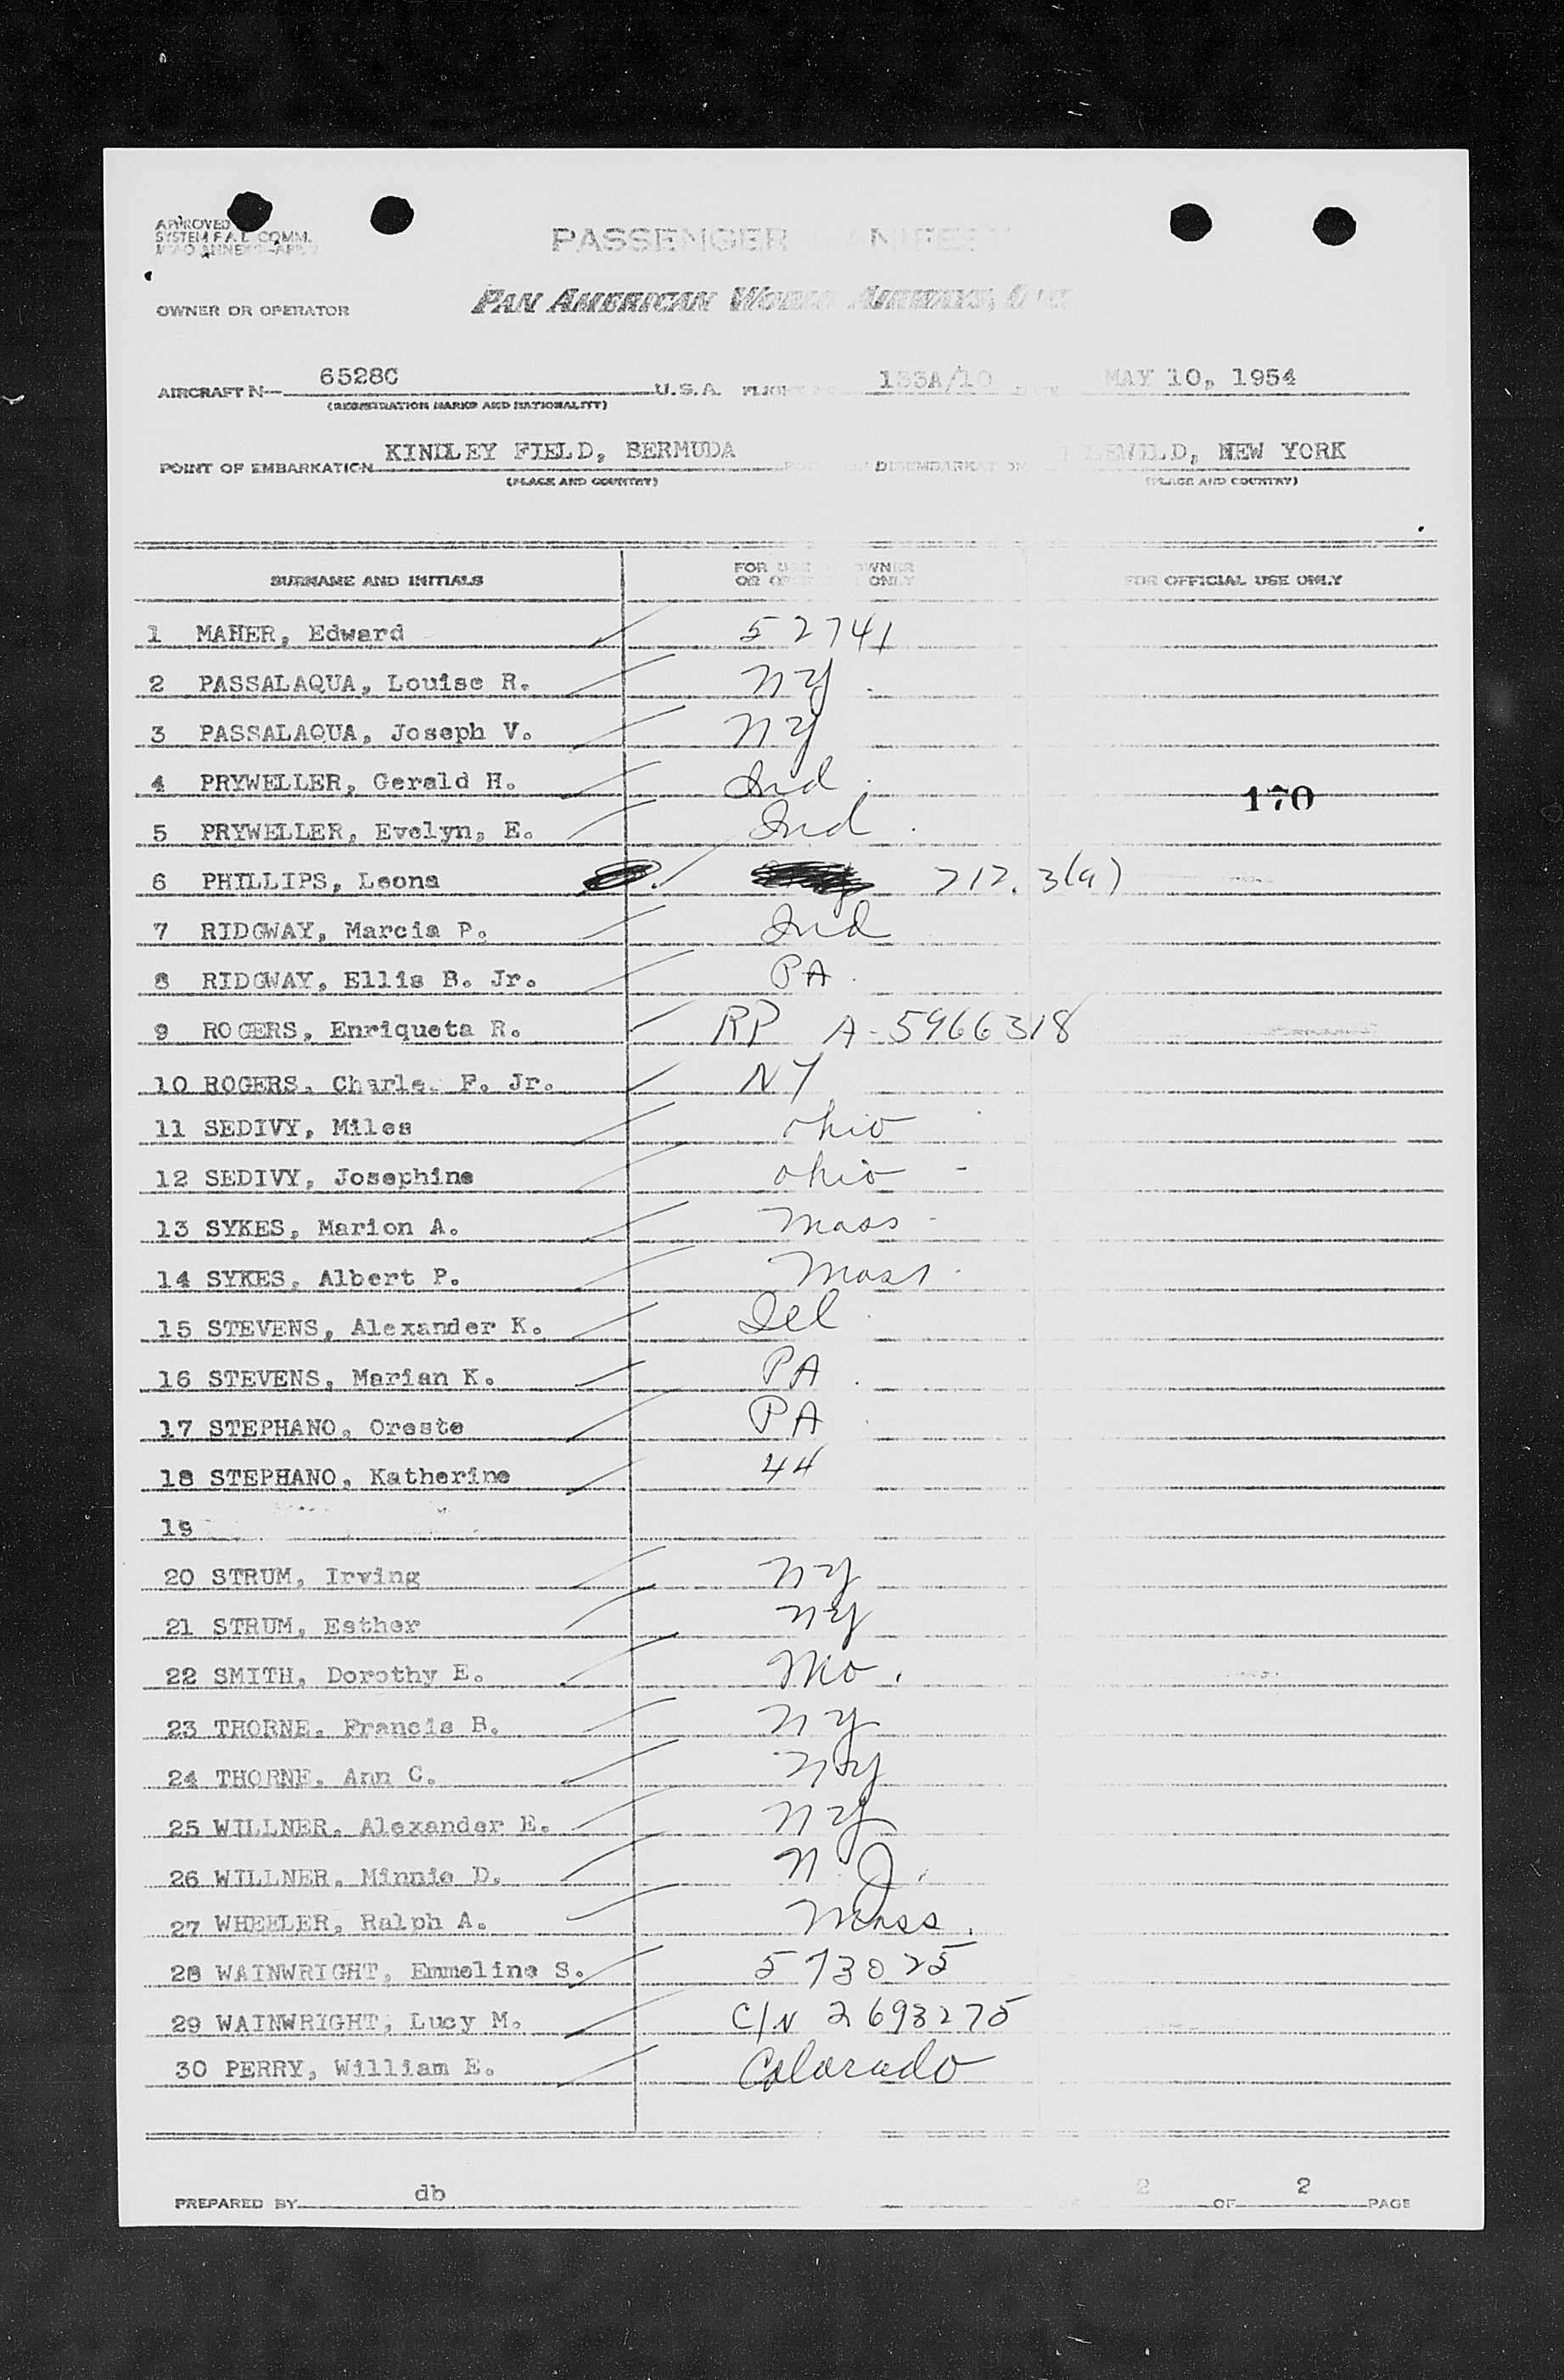 APPROVED
SYSTEM F.A.L. COMM.
PASSENGER MANIFEST
OWNER OR OPERATOR PAN AMERICAN WORLD AIRWAYS, INC.
AIRCRAFT N— 6528C U.S.A. FLIGHT NO. 133A/10 DATE MAY 10, 1954
(REGISTRATION MARKS AND NATIONALITY)
POINT OF EMBARKATION KINDLEY FIELD, BERMUDA POINT OF DISEMBARKATION IDLEWILD, NEW YORK
(PLACE AND COUNTRY) (PLACE AND COUNTRY)
SURNAME AND INITIALS FOR USE BY OWNER OR OPERATOR ONLY FOR OFFICIAL USE ONLY
1 MAHER, Edward 52741
2 PASSALAQUA, Louise R. NY
3 PASSALAQUA, Joseph V. NY
4 PRYWELLER, Gerald H. Ind
170
5 PRYWELLER, Evelyn, E. Ind
6 PHILLIPS, Leona 212.3(a)
7 RIDGWAY, Marcia P. Ind
8 RIDGWAY, Ellis B. Jr. PA
9 ROGERS, Enriqueta R. RP A-5966318
10 ROGERS, Charles F. Jr. NY
11 SEDIVY, Miles Ohio
12 SEDIVY, Josephine Ohio
13 SYKES, Marion A. Mass
14 SYKES, Albert P. Mass
15 STEVENS, Alexander K. Del
16 STEVENS, Marian K. PA
17 STEPHANO, Oreste PA
18 STEPHANO, Katherine 44
19
20 STRUM, Irving NY
21 STRUM, Esther NY
22 SMITH, Dorothy E. Mo.
23 THORNE, Francis B. NY
24 THORNE, Ann C. NY
25 WILLNER, Alexander E. NY
26 WILLNER, Minnie D. N.J.
27 WHEELER, Ralph A. Mass.
28 WAINWRIGHT, Emmeline S. 573025
29 WAINWRIGHT, Lucy M. C/N 2693275
30 PERRY, William E. Colorado
PREPARED BY db 2 OF 2 PAGE